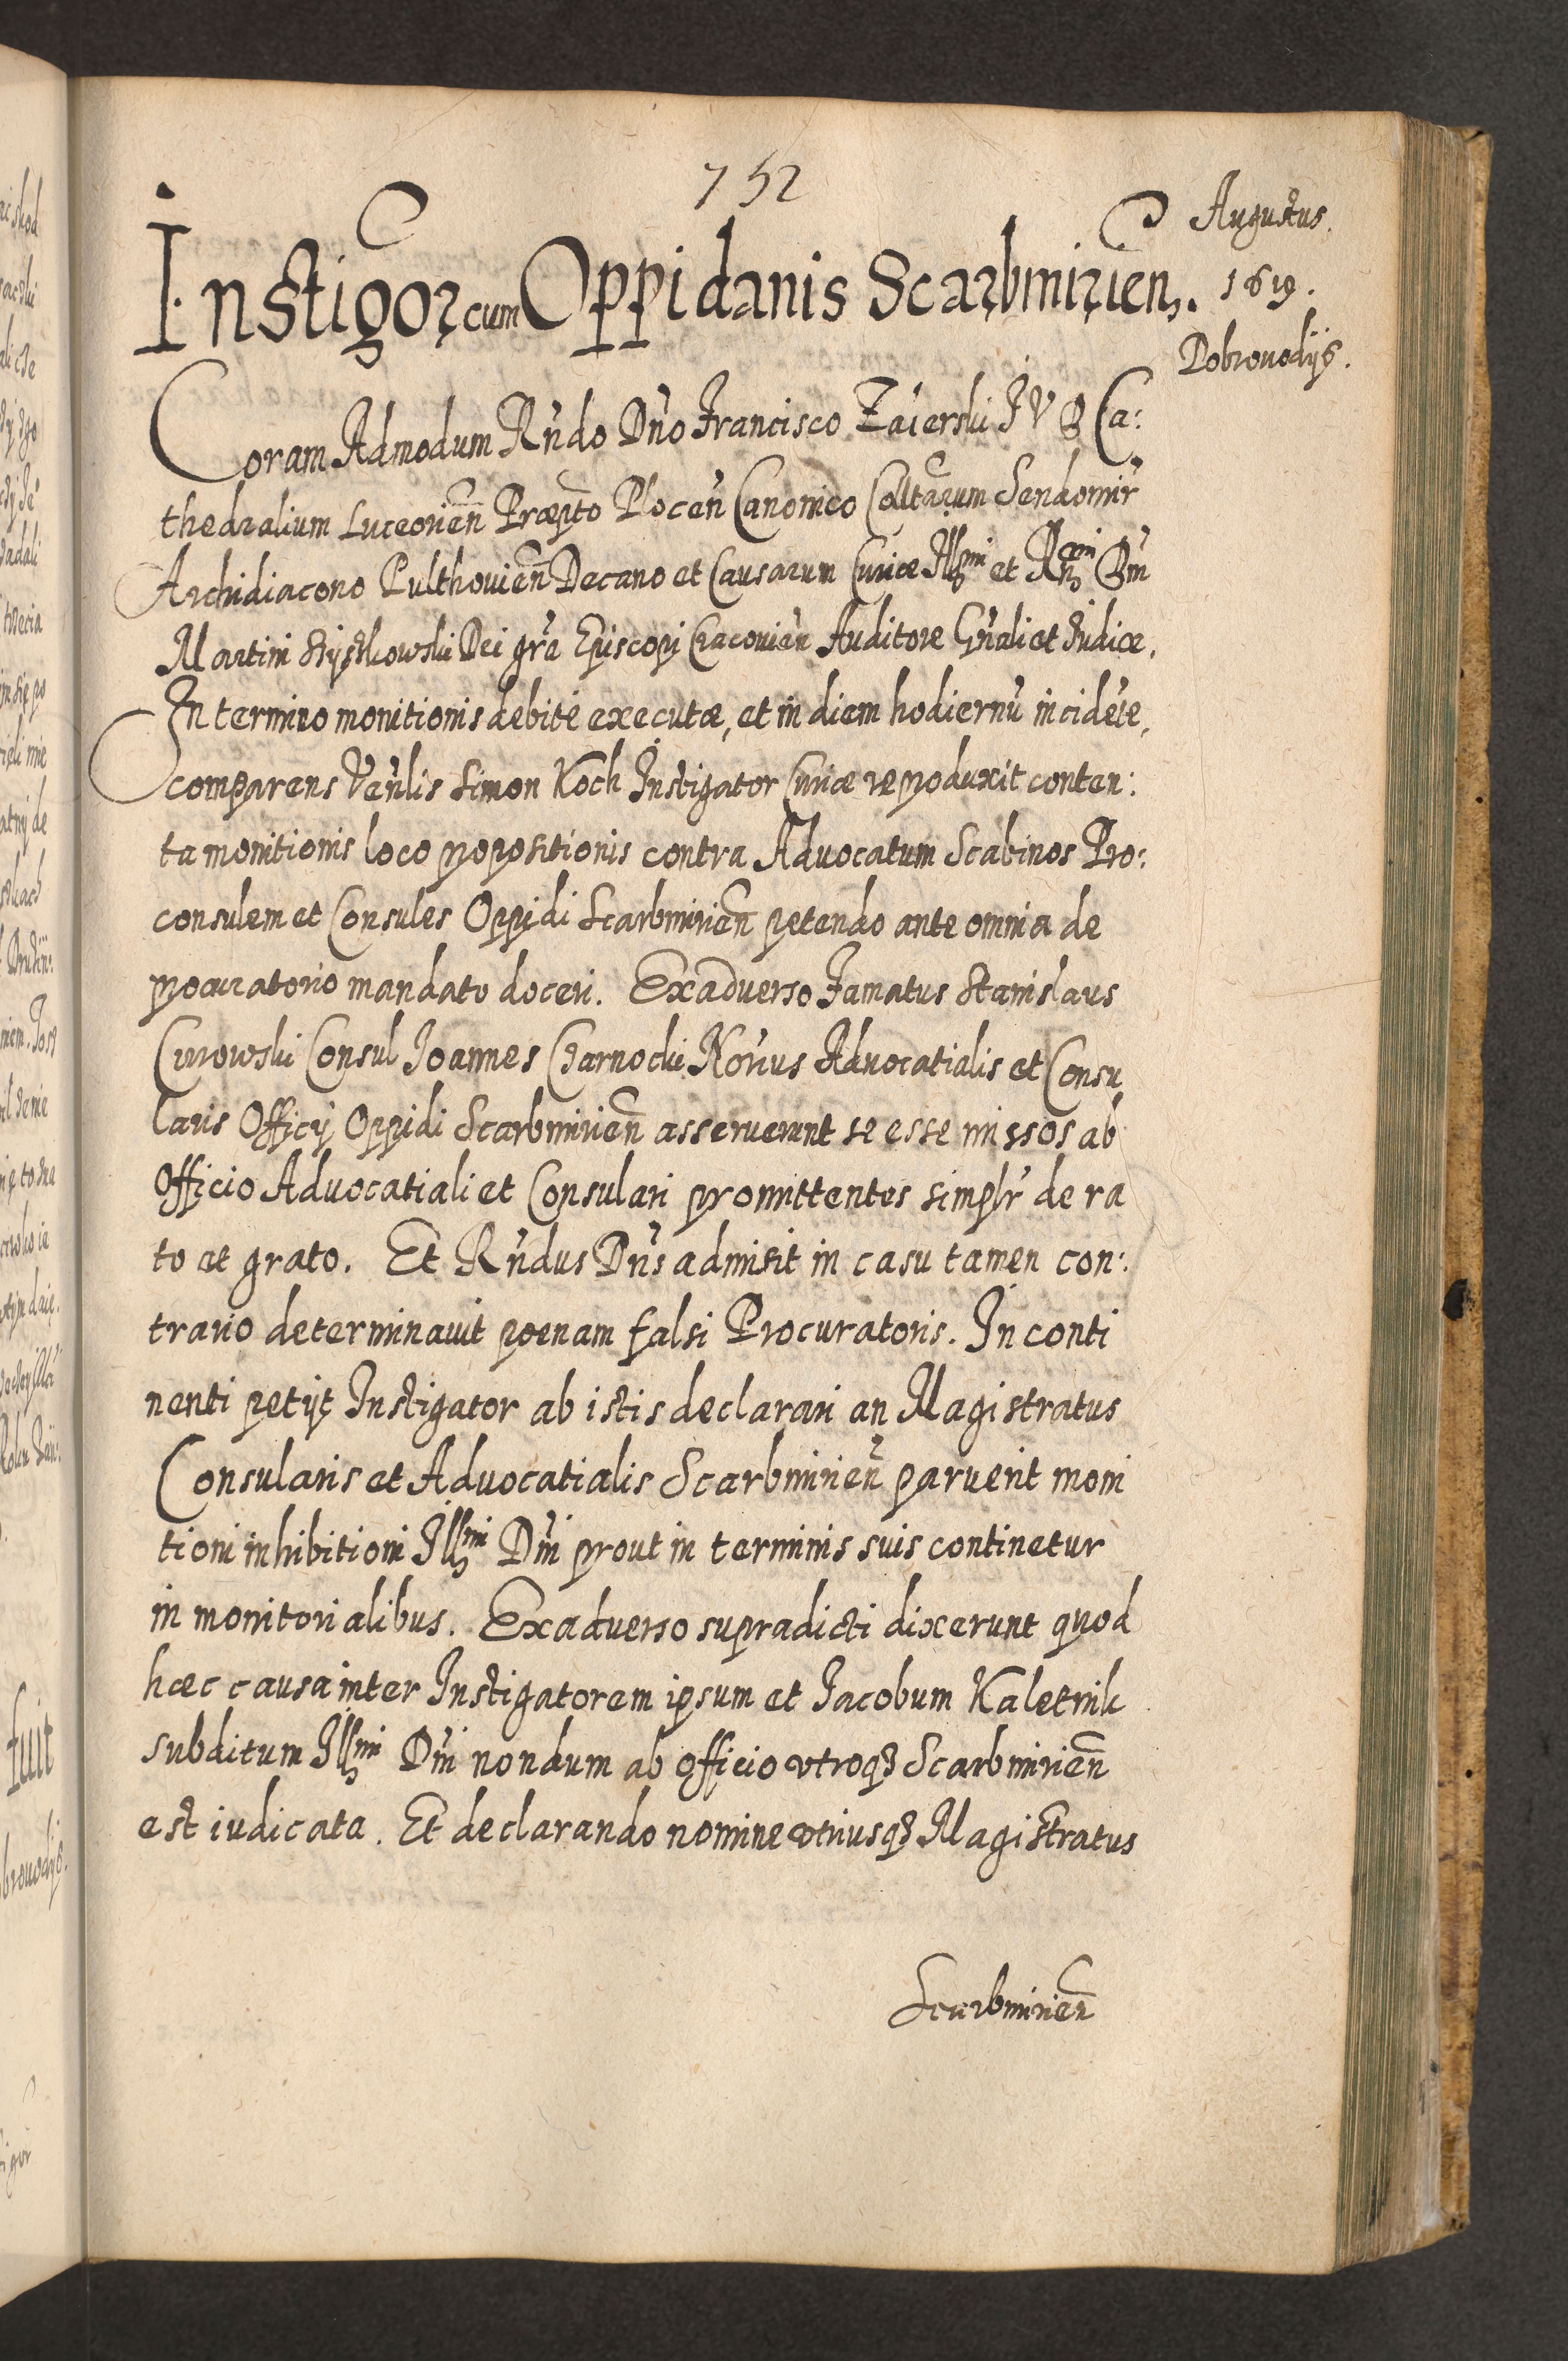 752
Augustus.
1619.
Dobrovodijs.
Instigor cum Oppidanis Scarbmirien.
Coram Admodum Rndo Dno Francisco Zaierski I V D Ca:
thedralium Luceorien Præpto Plocen Canonico Colltarum Sendomir
Archidiacono Pulthovien Decano et Causarum Curiæ Illmi et Rmi Dni
Martini Szyszkowski Dei gra Episcopi Cracovien Auditore Gnali et Iudice.
In termino monitionis debite executæ, et in diem hodiernu incidete,
comparens Venlis Simon Koch Instigator Curiæ reproduxit conten:
ta monitionis loco propositionis contra Advocatum Scabinos Pro:
consulem et Consules Oppidi Scarbmirien petendo ante omnia de
procuratorio mandato doceri. Exadverso Famatus Stanislaus
Curowski Consul Ioannes Czarnocki Norius Advocatialis et Consu
laris Officij Oppidi Scarbmirien asseruerunt se esse missos ab
Officio Advocatiali et Consulari promittentes simplr de ra
to et grato. Et Rndus Dns admisit in casu tamen con:
trario determinavit poenam falsi Procuratoris. In conti
nenti petijt Instigator ab istis declarari an Magistratus
Consularis et Advocatialis Scarbmirien paruerit moni
tioni inhibitioni Illmi Dni prout in terminis suis continetur
in monitorialibus. Exadverso supradicti dixerunt quod
hæc causa inter Instigatorem ipsum et Iacobum Kaletnik
subditum Illmi Dni nondum ab officio vtroq3 Scarbmirien
est iudicata. Et declarando nomine vtriusq3 Magistratus
Scarbmirien